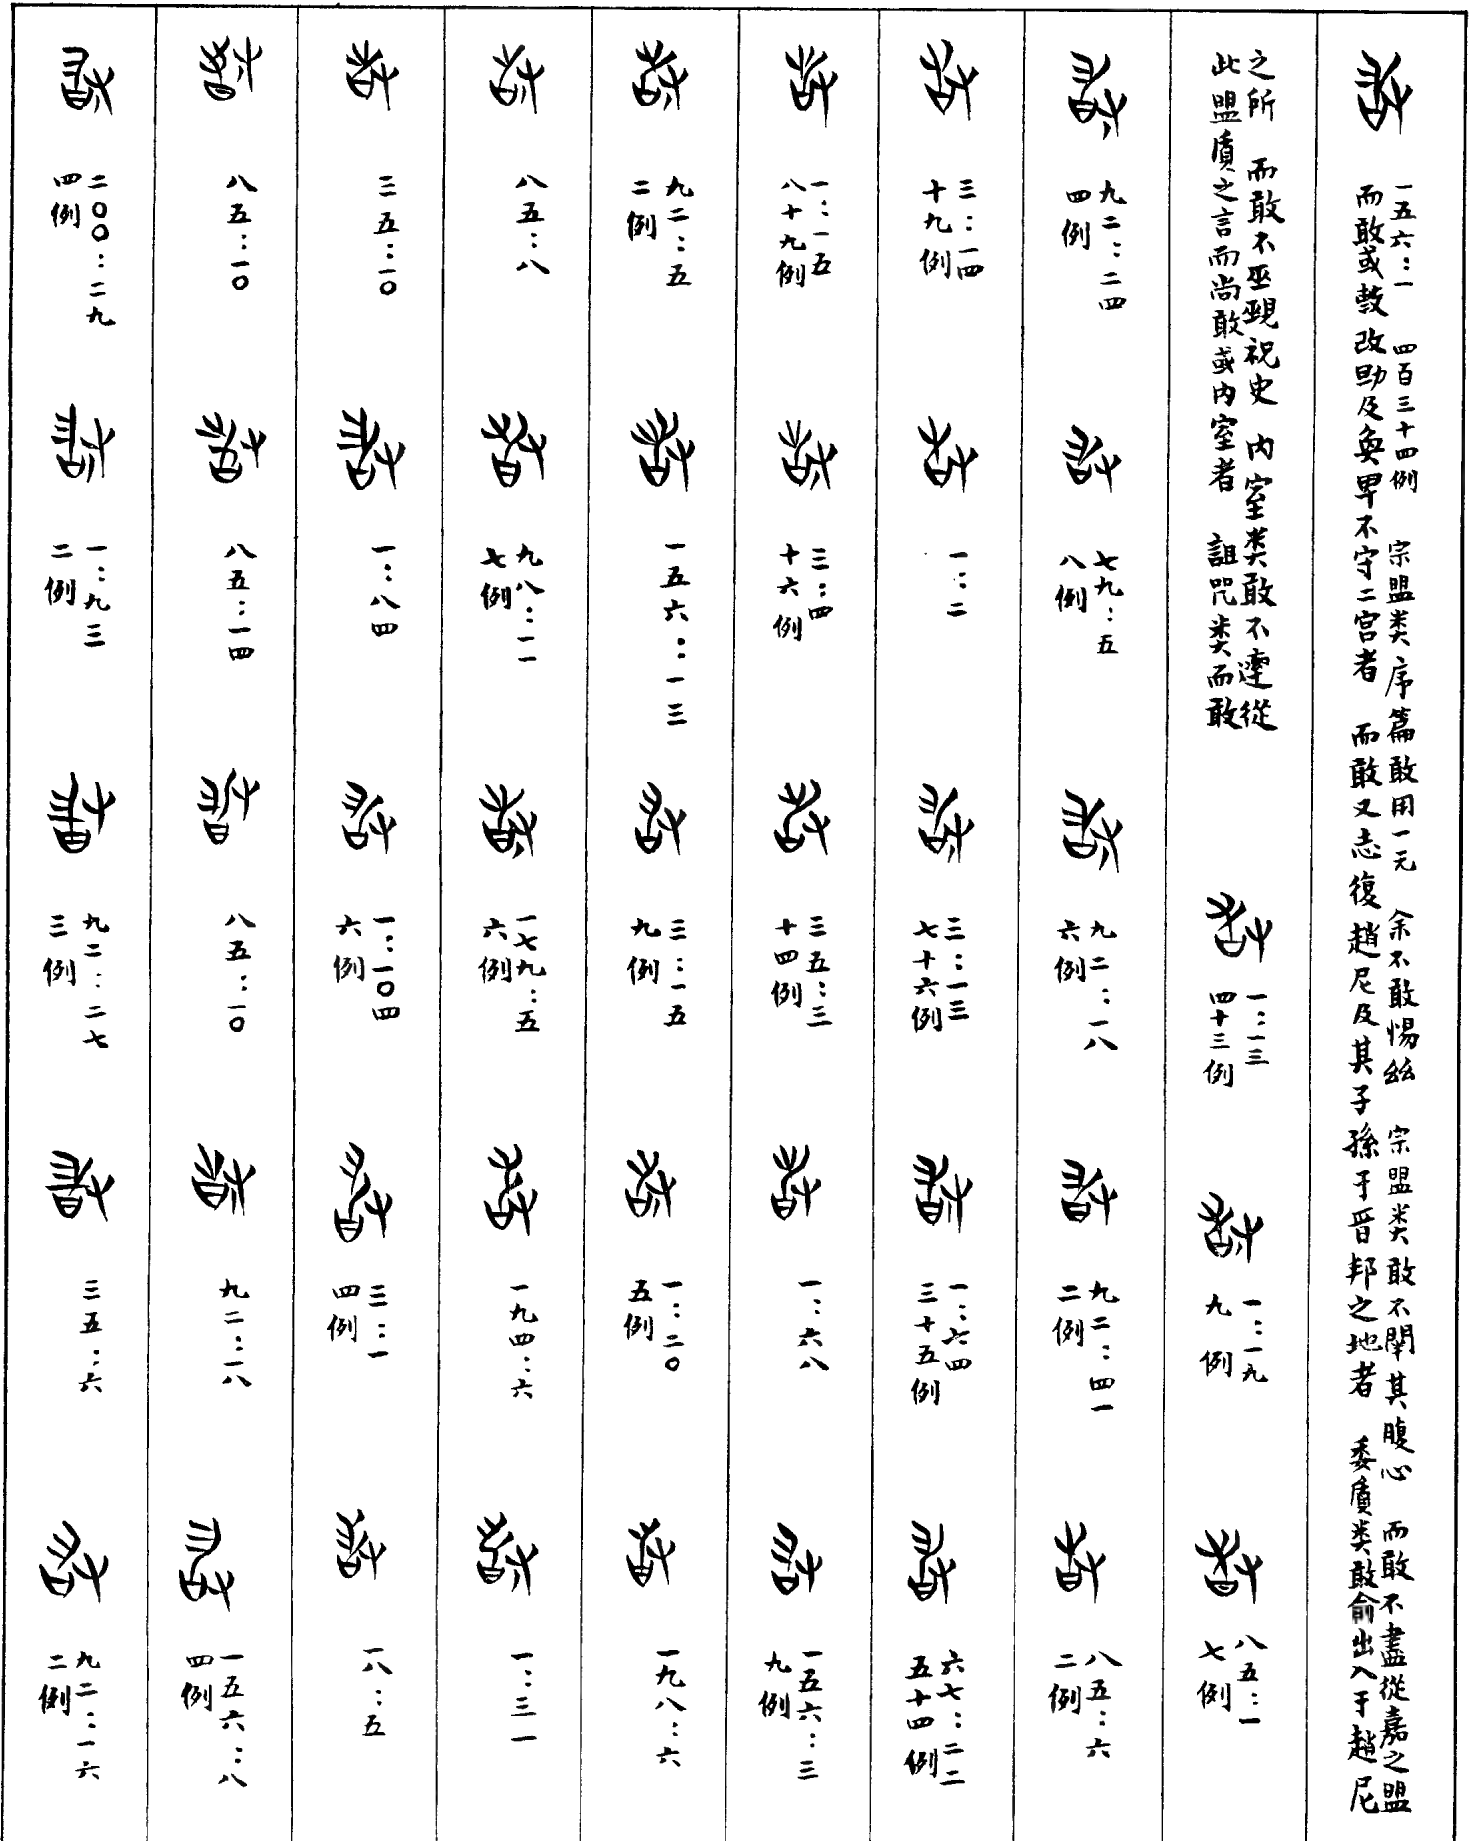 敢
一五六：一　四百三十四例　宗盟类序篇敢用一元　余不敢惕絲　宗盟类敢不闡其腹心　而敢不盡從嘉之盟
而敢或𢿐改助及奐卑不守二宫者　而敢又志復趙尼及其子孫于晋邦之地者　委质类敢俞出入于趙尼
之所　而敢不巫覡祝史　内室类敢不達從
此盟质之言而尚敢或内室者　詛咒类而敢
一：一三
四十三例
一：一九
九例
八五：一
七例
九二：二四
四例
七九：五
八例
九二：一八
六例
九二：四一
二例
八五：六
二例
三：一四
十九例
一：二
三：一三
七十六例
一：六四
三十五例
六七：二二
五十四例
一：一五
八十九例
三：四
十六例
三五：三
十四例
一：六八
一五六：三
九例
九二：五
二例
一五六：一三
三：一五
九例
一：二〇
五例
一九八：六
八五：八
九八：一一
七例
一七九：五
六例
一九四：六
一：三一
三五：一〇
一：八四
一：一〇四
六例
三：一
四例
一八：五
八五：一〇
八五：一四
八五：一〇
九二：一八
一五六：八
四例
二〇〇：二九
四例
一：九三
二例
九二：二七
三例
三五：六
九二：一六
二例